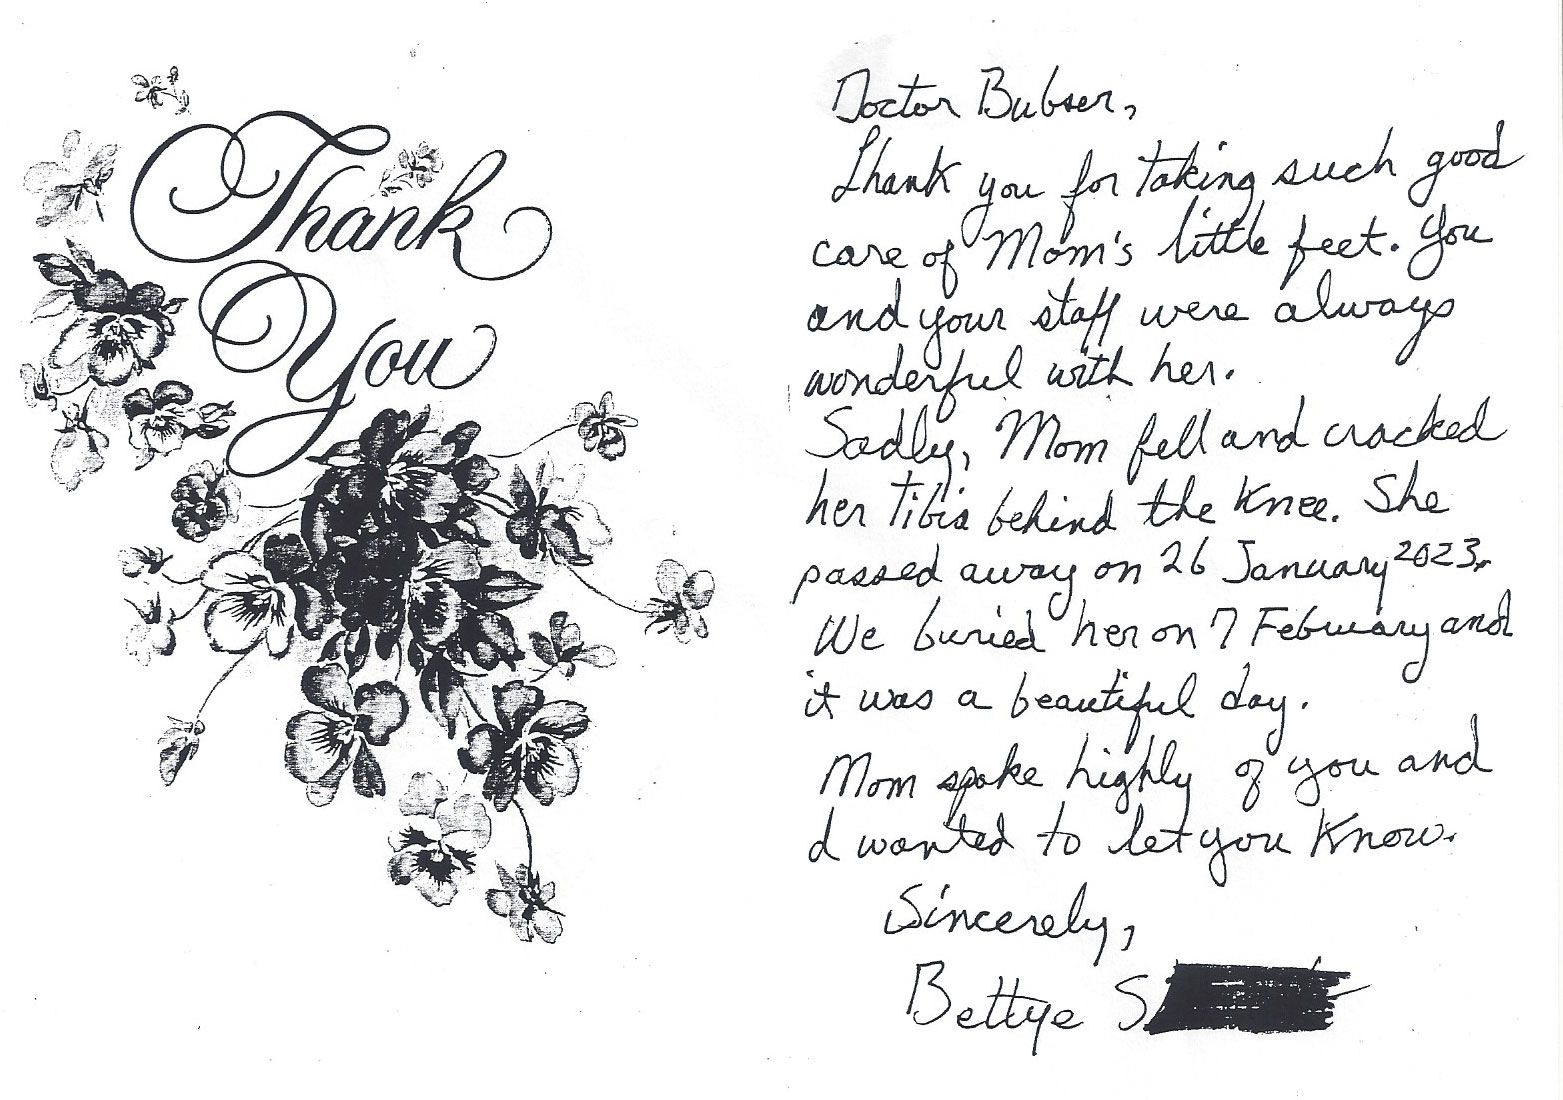 Thank
You
Doctor Bubser,
Thank you for taking such good
care of Mom's little feet. You
and your staff were always
wonderful with her.
Sadly, Mom fell and cracked
her tibia behind the knee. She
passed away on 26 January 2023.
We buried her on 7 February and
it was a beautiful day.
Mom spoke highly of you and
I wanted to let you know.
Sincerely,
Bettye S